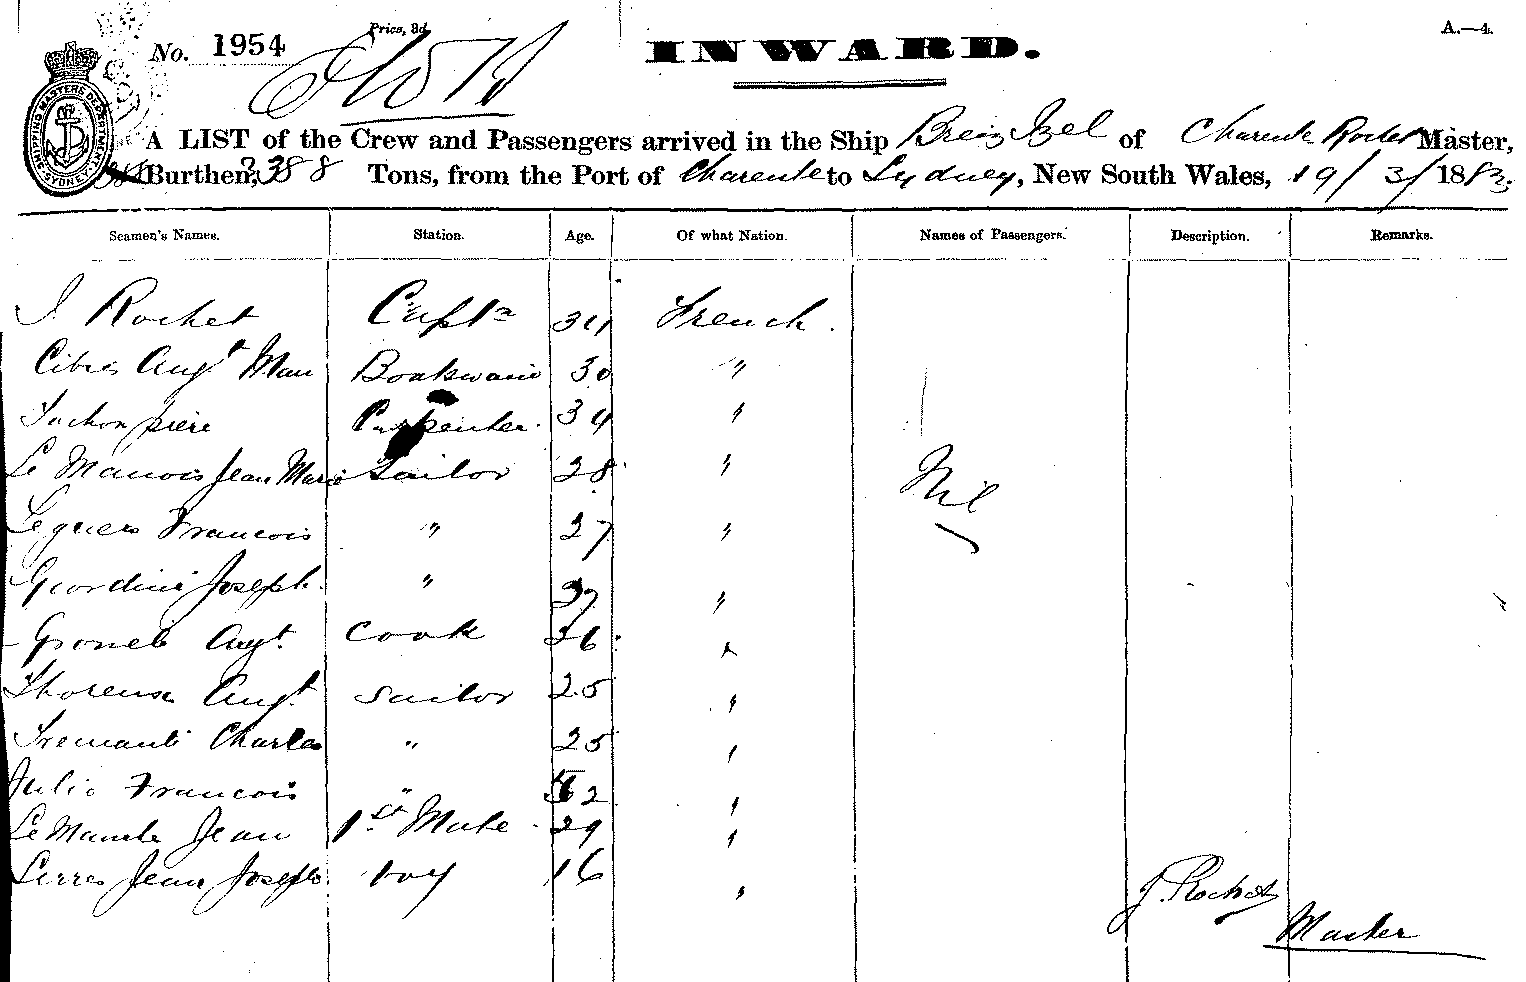 A.—4.
Price, 3d.
No. 1954
INWARD.
SHIPPING MASTERS DEPARTMENT SYDNEY
A LIST of the Crew and Passengers arrived in the Ship Breiz Izel of Charente Rochet Master,
Burthen, 388 Tons, from the Port of Charente to Sydney, New South Wales, 19/3/1883.
Seamen's Names. Station. Age. Of what Nation. Names of Passengers. Description. Remarks.
J. Rochet Captn 34 French.
Augt Boatswain 30 "
piere Carpenter. 34 "
Le Manois Jean Marie Sailor 28 " Nil
Leguers Francois " 27 "
Giordini Joseph. " 27 "
Augt. Cook "
Augt Sailor 25 "
Charles " 25 "
Julio Francois " "
Jean 1st Mate 29 "
Jean Joseph boy 16 "
J. Rochet
Master